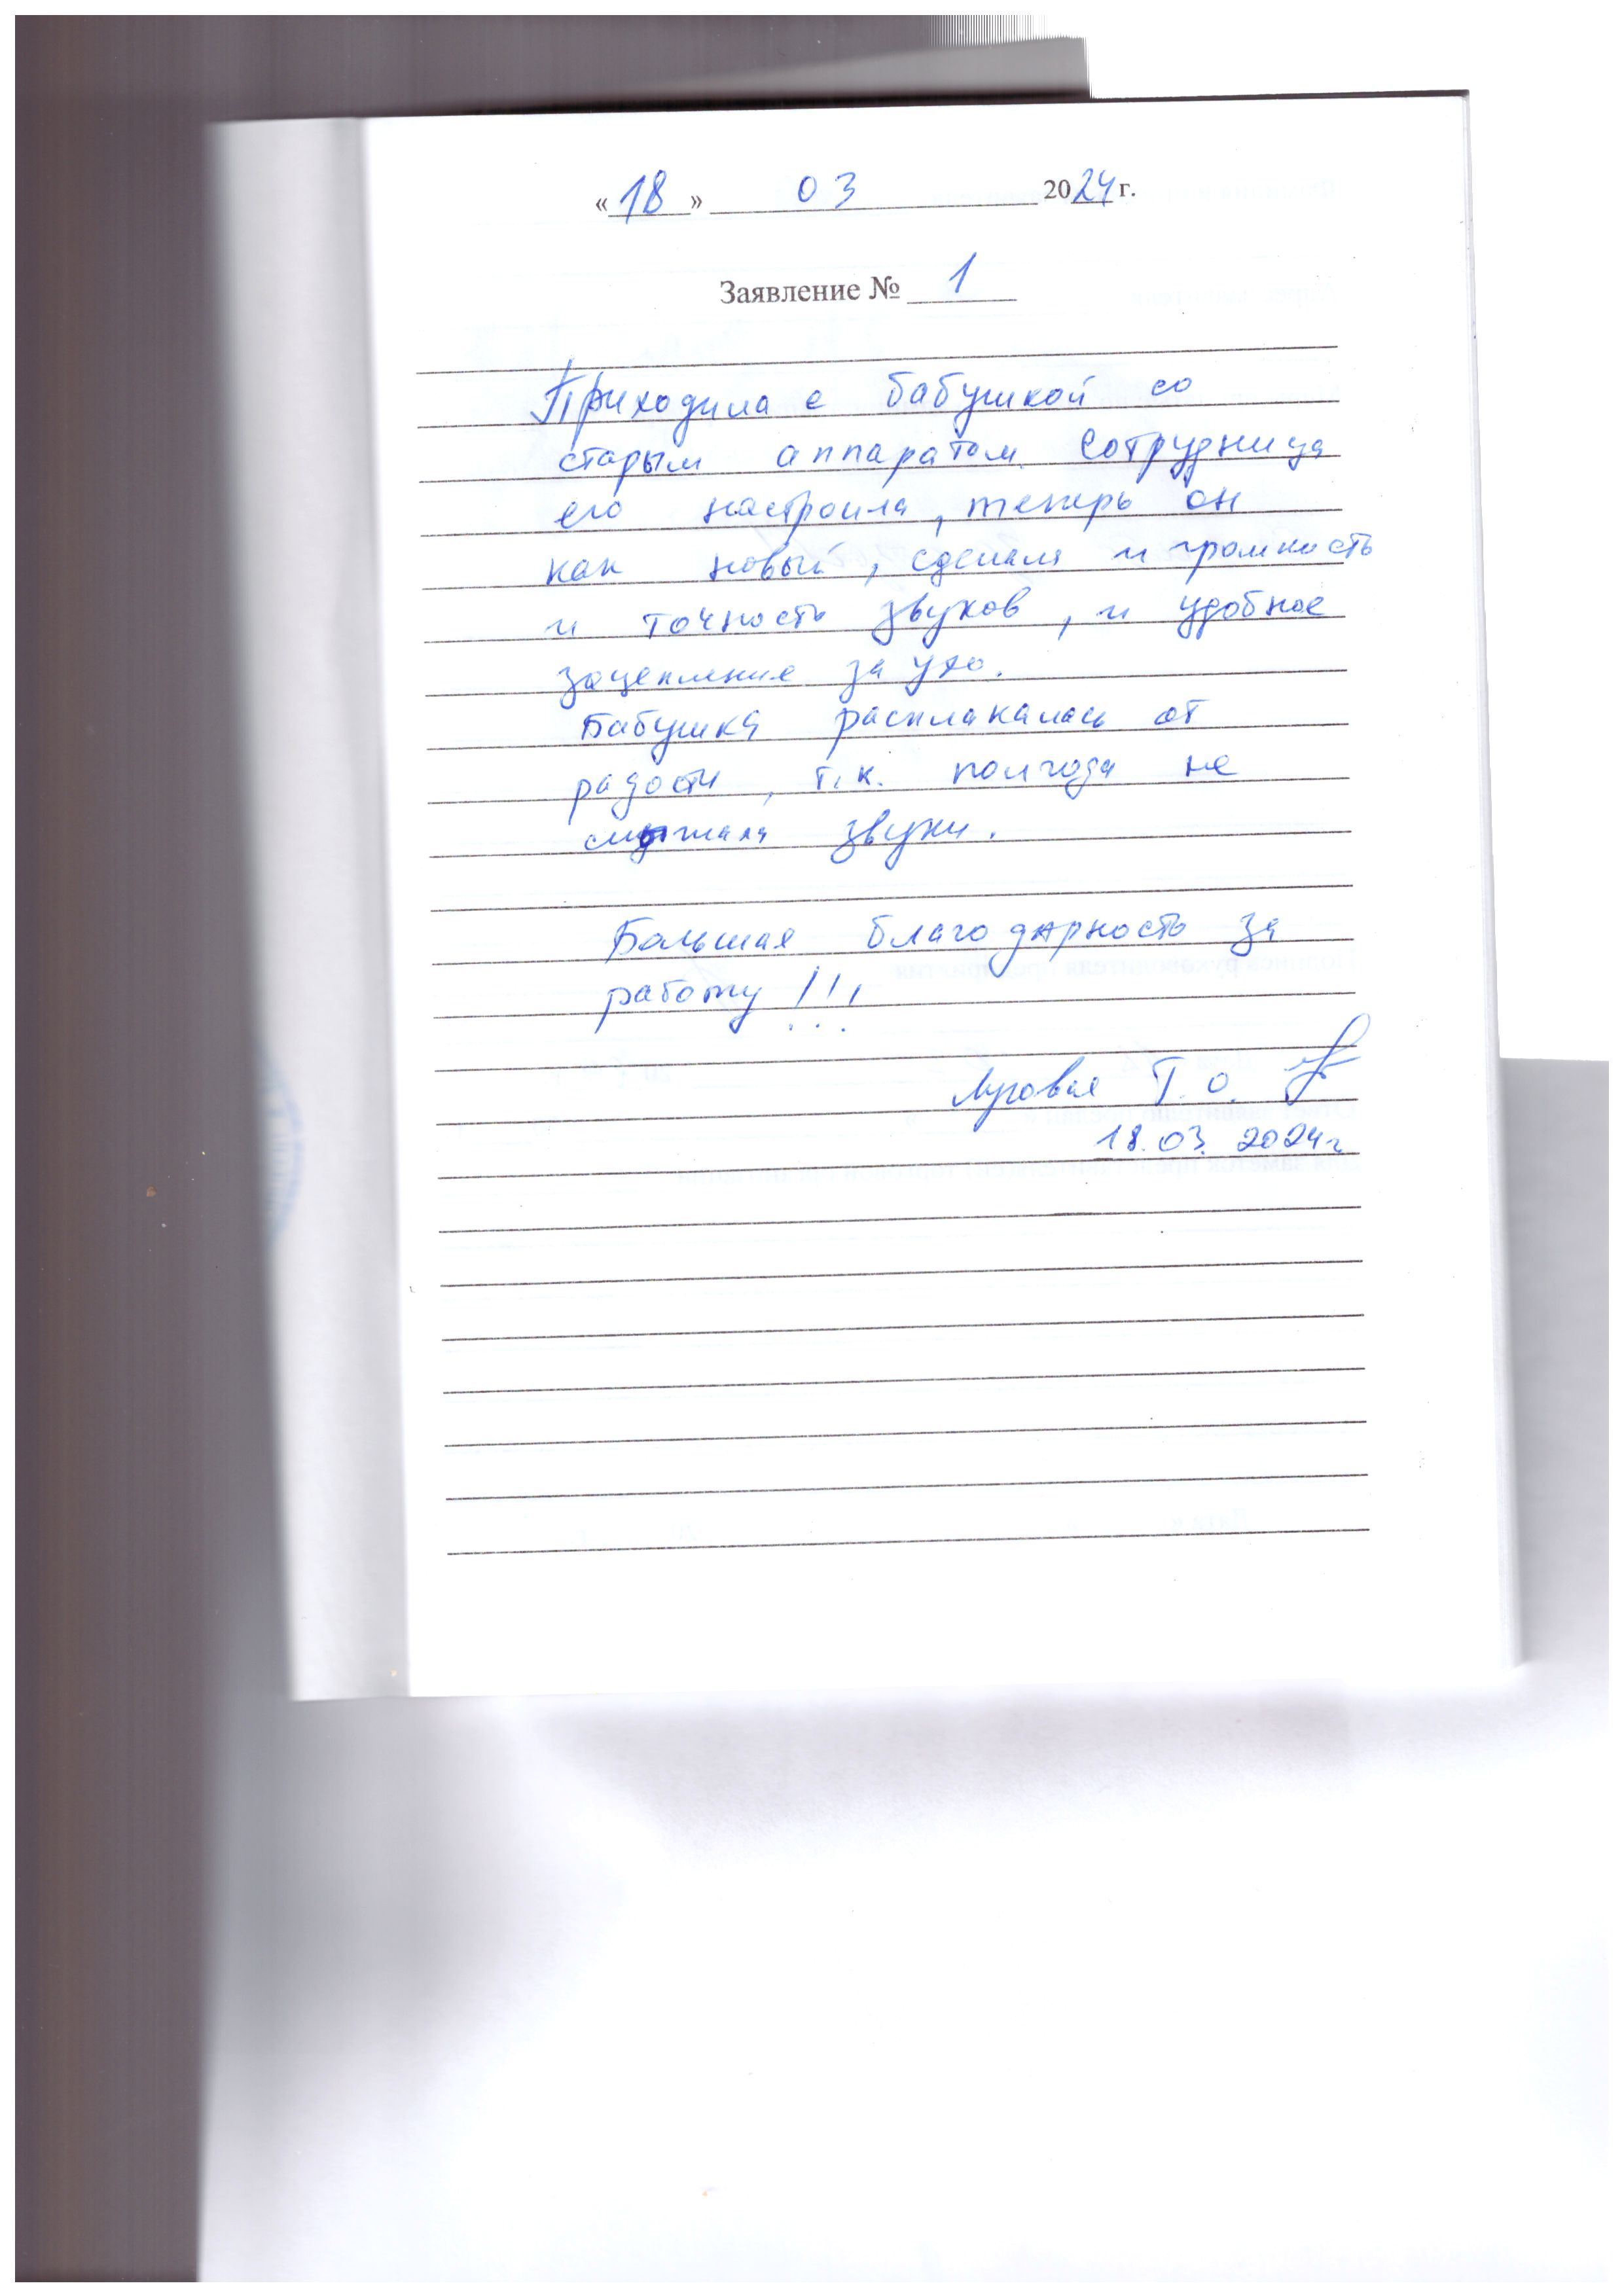 «18» 03 2024 г.
Заявление № 1
Приходила с бабушкой со
старым аппаратом. Сотрудница
его настроила, теперь он
как новый, сделали и громкость
и точность звуков, и удобное
зацепление за ухо.
Бабушка расплакалась от
радости, т.к. полгода не
слышала звуки.
Большая благодарность за
работу!!!
Луговая Т.О.
18.03.2024г